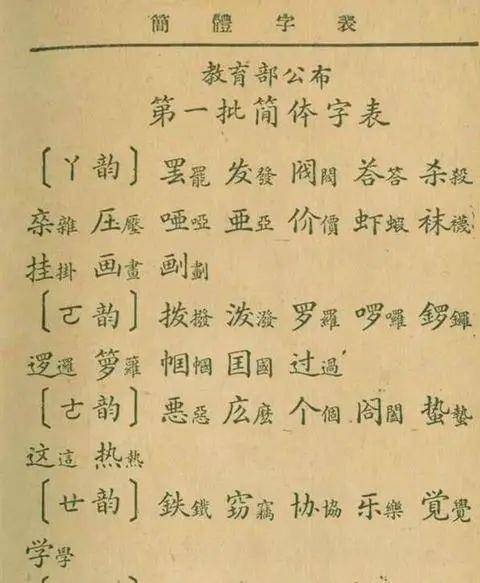 簡體字表
教育部公布
第一批简体字表
〔ㄚ韵〕罢罷 发發 阀閥 荅答 杀殺
杂雜 圧壓 唖啞 亜亞 价價 虾蝦 袜襪
挂掛 画畫 㓰劃
〔ㄛ韵〕拨撥 泼潑 罗羅 啰囉 锣鑼
逻邏 箩籮 帼幗 囯國 过過
〔ㄜ韵〕悪惡 庅麼 个個 阖闔 蛰蟄
这這 热熱
〔ㄝ韵〕鉄鐵 窃竊 协協 乐樂 覚覺
学學